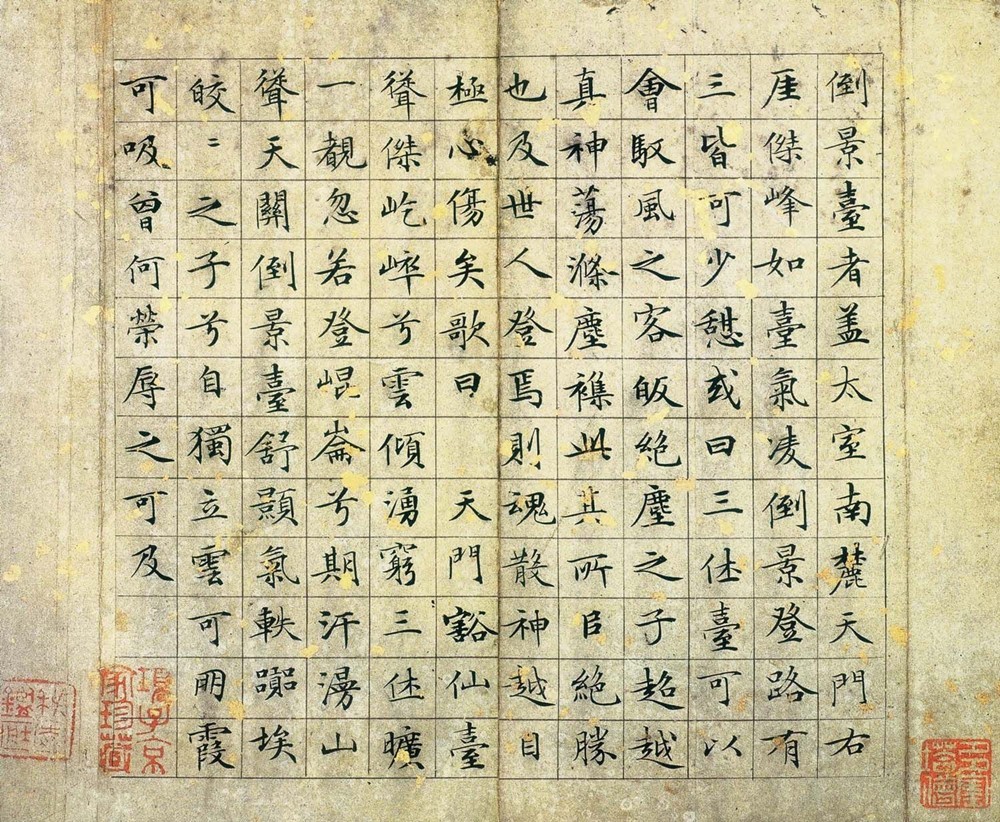 倒景臺者盖太室南麓天門右
厓傑峰如臺氣凌倒景登路有
三皆可少憇或曰三休臺可以
會馭風之客皈絶塵之子超越
真神蕩滌塵襟此其所㠯絶勝
也及世人登焉則魂散神越目
極心傷矣歌曰 天門豁仙臺
聳傑屹崒兮雲傾湧窮三休曠
一覩忽若登崐崙兮期汗漫山
聳天關倒景臺舒顥氣軼囂埃
皎〻之子兮自獨立雲可朋霞
可吸曾何榮辱之可及
項子京
家珍藏